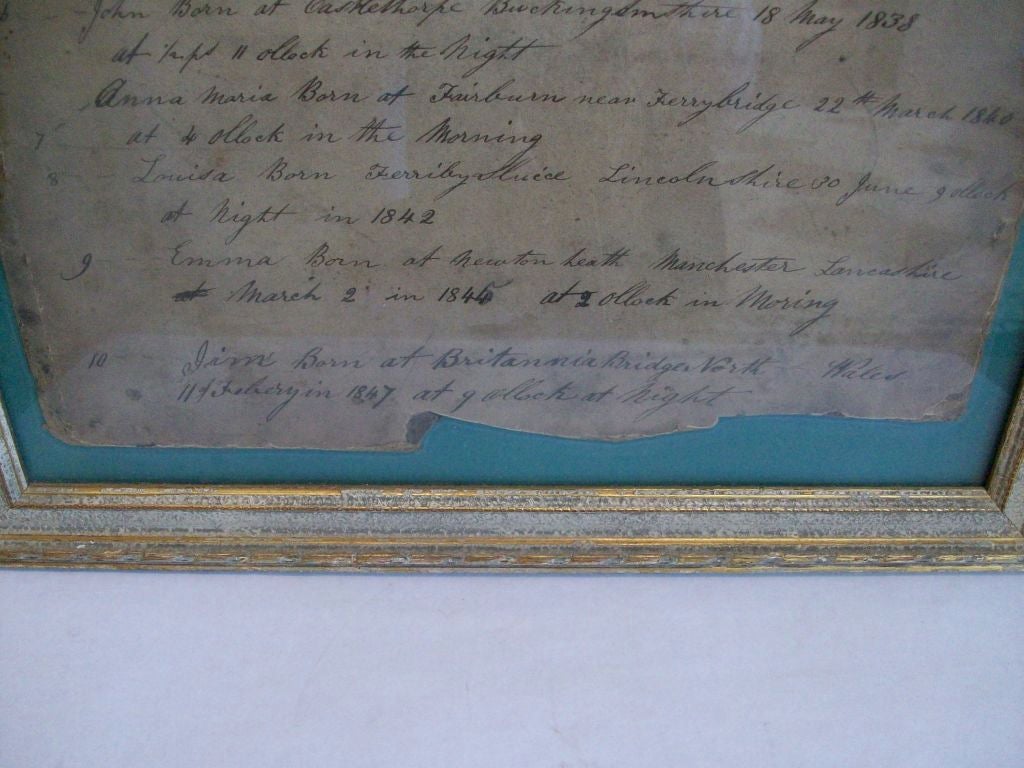 6 - John Born at Casklethorpe Buckingdmshire 18 May 1838
at ½ pt 11 ollock in the Night
Anna Maria Born at Fairburn near Ferrybridge 22th March 1840
7 at 4 ollock in the Morning
8 - Louisa Born Ferriby Sluice Lincolnshire 30 June 9 ollock
at Night in 1842
9 Emma Born at Newton heath Manchester Lancashire
at March 2 in 1845 at 2 ollock in Moring
10 Born at Britannia Bridge North Wales
11 Febery in 1847 at 9 ollock at Night